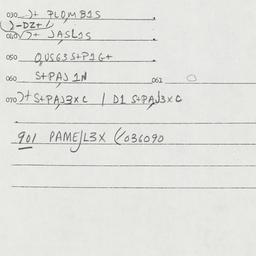 030 )+ PLOMB1S
)-DZ+(
040 )+ JASL1S
050 QUSG3S+P1G+
060 S+PAJ1N 061 O
070 )+S+PAJ3XC / D1 S+PAJ3XC
901 PAME/L3X (036090